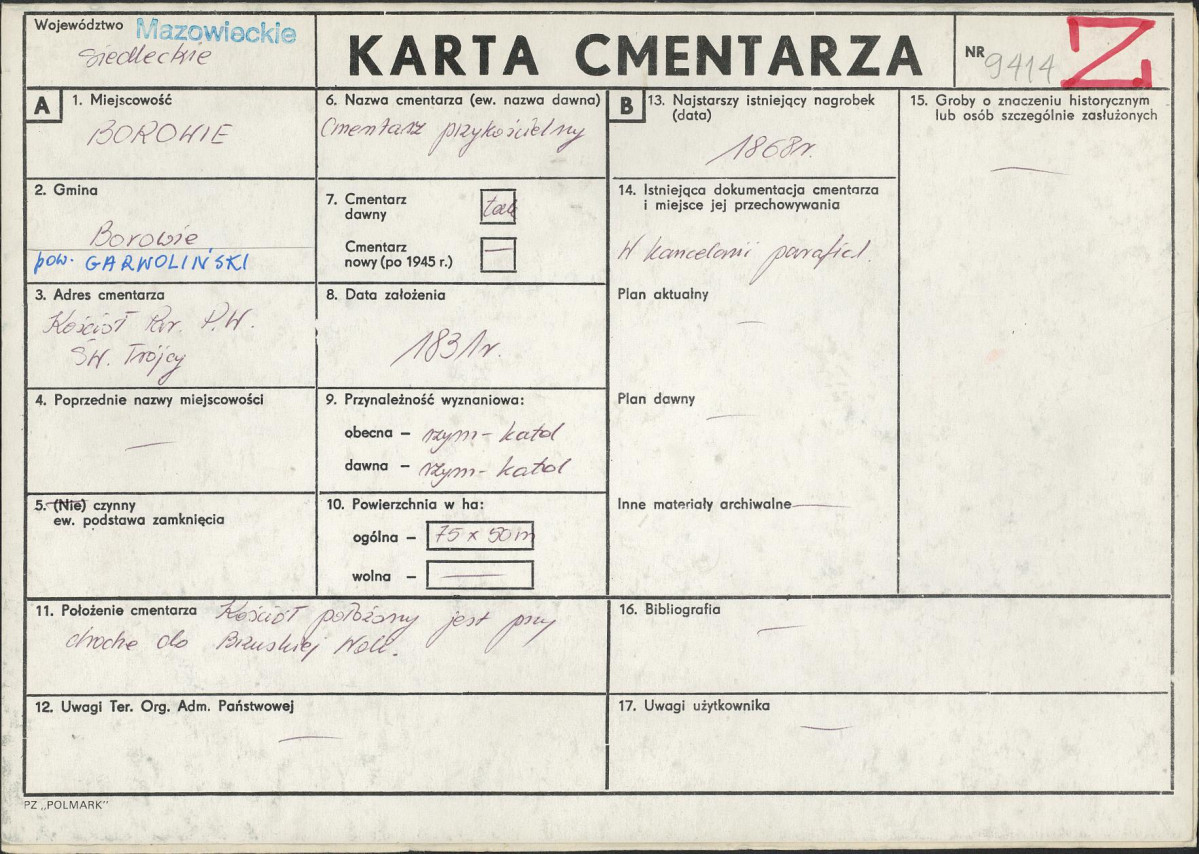 Województwo Mazowieckie
Siedleckie
KARTA CMENTARZA
NR 9414 Z.
A
1. Miejscowość
BOROWIE
2. Gmina
Borowie
pow. GARWOLIŃSKI
3. Adres cmentarza
Kościół Par. P.W.
ŚW. Trójcy
4. Poprzednie nazwy miejscowości
—
5. (Nie) czynny
ew. podstawa zamknięcia
6. Nazwa cmentarza (ew. nazwa dawna)
Cmentarz przykościelny
7. Cmentarz
dawny tak
Cmentarz
nowy (po 1945 r.) —
8. Data założenia
1831r.
9. Przynależność wyznaniowa:
obecna – rzym-katol
dawna – rzym-katol
10. Powierzchnia w ha:
ogólna – 75 x 50m
wolna – —
11. Położenie cmentarza Kościół położony jest przy
drodze do Brzuskiej Woli.
12. Uwagi Ter. Org. Adm. Państwowej
—
B
13. Najstarszy istniejący nagrobek
(data)
1868r.
14. Istniejąca dokumentacja cmentarza
i miejsce jej przechowywania
W kancelarii parafial.
Plan aktualny
—
Plan dawny
—
Inne materiały archiwalne —
15. Groby o znaczeniu historycznym
lub osób szczególnie zasłużonych
—
16. Bibliografia
—
17. Uwagi użytkownika
—
PZ „POLMARK"